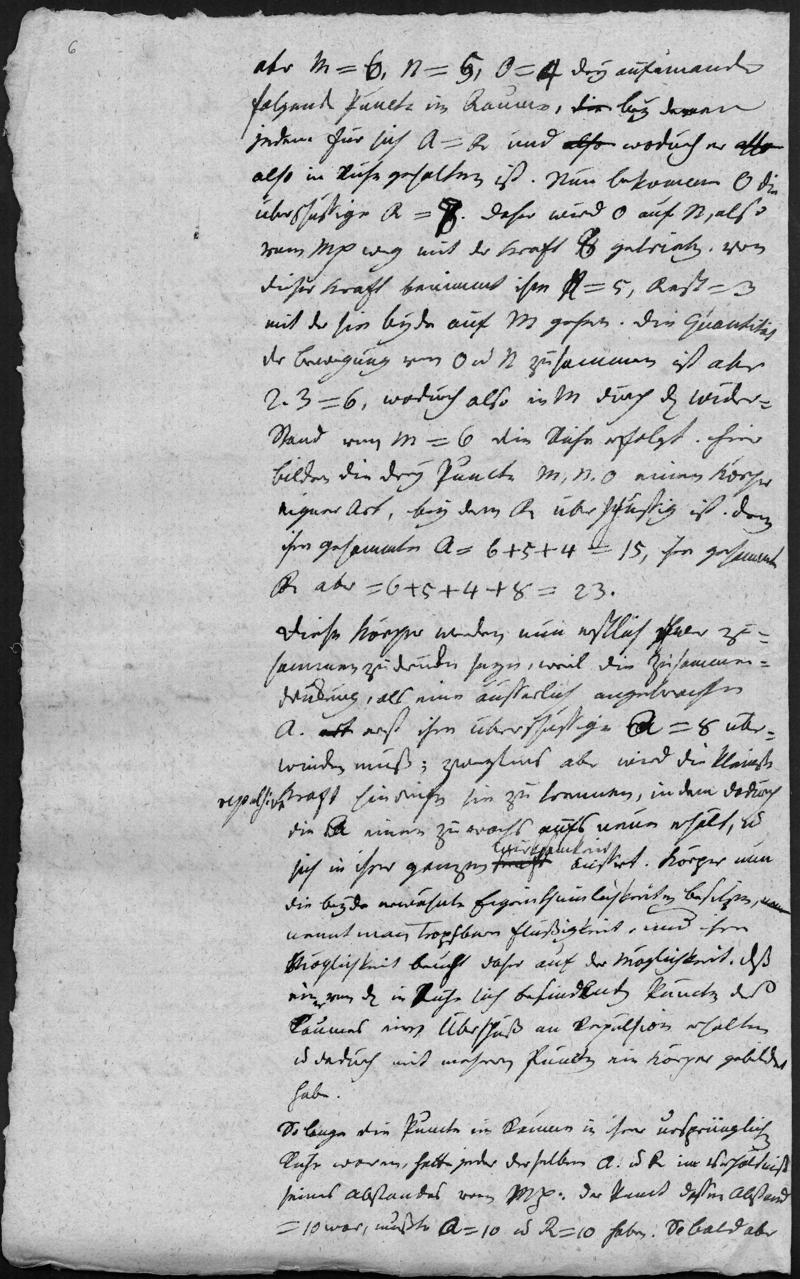 6
aber M = 6, N = 5, O = 4 drey aufeinander
folgende Puncte im Raume, die bey denen
jedem für sich A = R und also wodurch er also
also in Ruhe gehalten ist. Nun bekomme O die
überflüssige R = 8. Daher wird O auf N, also
vom Mp weg mit der Kraft 8 getrieben. von
dieser Kraft benimmt ihm N = 5, Rest = 3
mit der sie beyde auf M gehen. Die Quantität
der Bewegung von O u N zusammen ist aber
2. 3 = 6, wodurch also in M durch den Wider=
stand von M = 6 die Ruhe erfolgt. Hier
bilden die drey Puncte M, N. O einen Körper
eigner Art, bey dem R überflüssig ist. denn
ihr gesammtes A = 6+5+4 = 15, ihr gesammtes
R aber = 6+5+4+8 = 23.
Diese Körper werden nun erstlich schwer zu=
sammenzudrücken seyn, weil die Zusammen=
drückung, als eine äusserlich angebrachte
A. erst ihre überflüssige R = 8 über=
winden muß; zweytens aber wird die kleinste
repulsive Kraft hinreichen sie zu trennen, indem dadurch
die R einen Zuwachs aufs neue erhält, u
sich in ihrer ganzen Kraft Wirksamkeit äussert. Körper nun
die beyde erwähnte Eigenthümlichkeiten besitzen,
nennt man tropfbare Flüßigkeit, und ihre
Möglichkeit beruht daher auf der Möglichkeit, daß
einer von den in Ruhe sich befindenden Puncten des
Raumes einen Überschuß an Repulsion erhalten
u dadurch mit mehrern Puncten ein Körper gebildet
habe.
So lange die Puncte im Raume in ihrer ursprünglichen
Ruhe waren, hatte jeder derselben A. u R im Verhältniß
seines Abstandes vom Mp. der Punct dessen Abstand
= 10 war, mußte A = 10 u R = 10 haben. Sobald aber